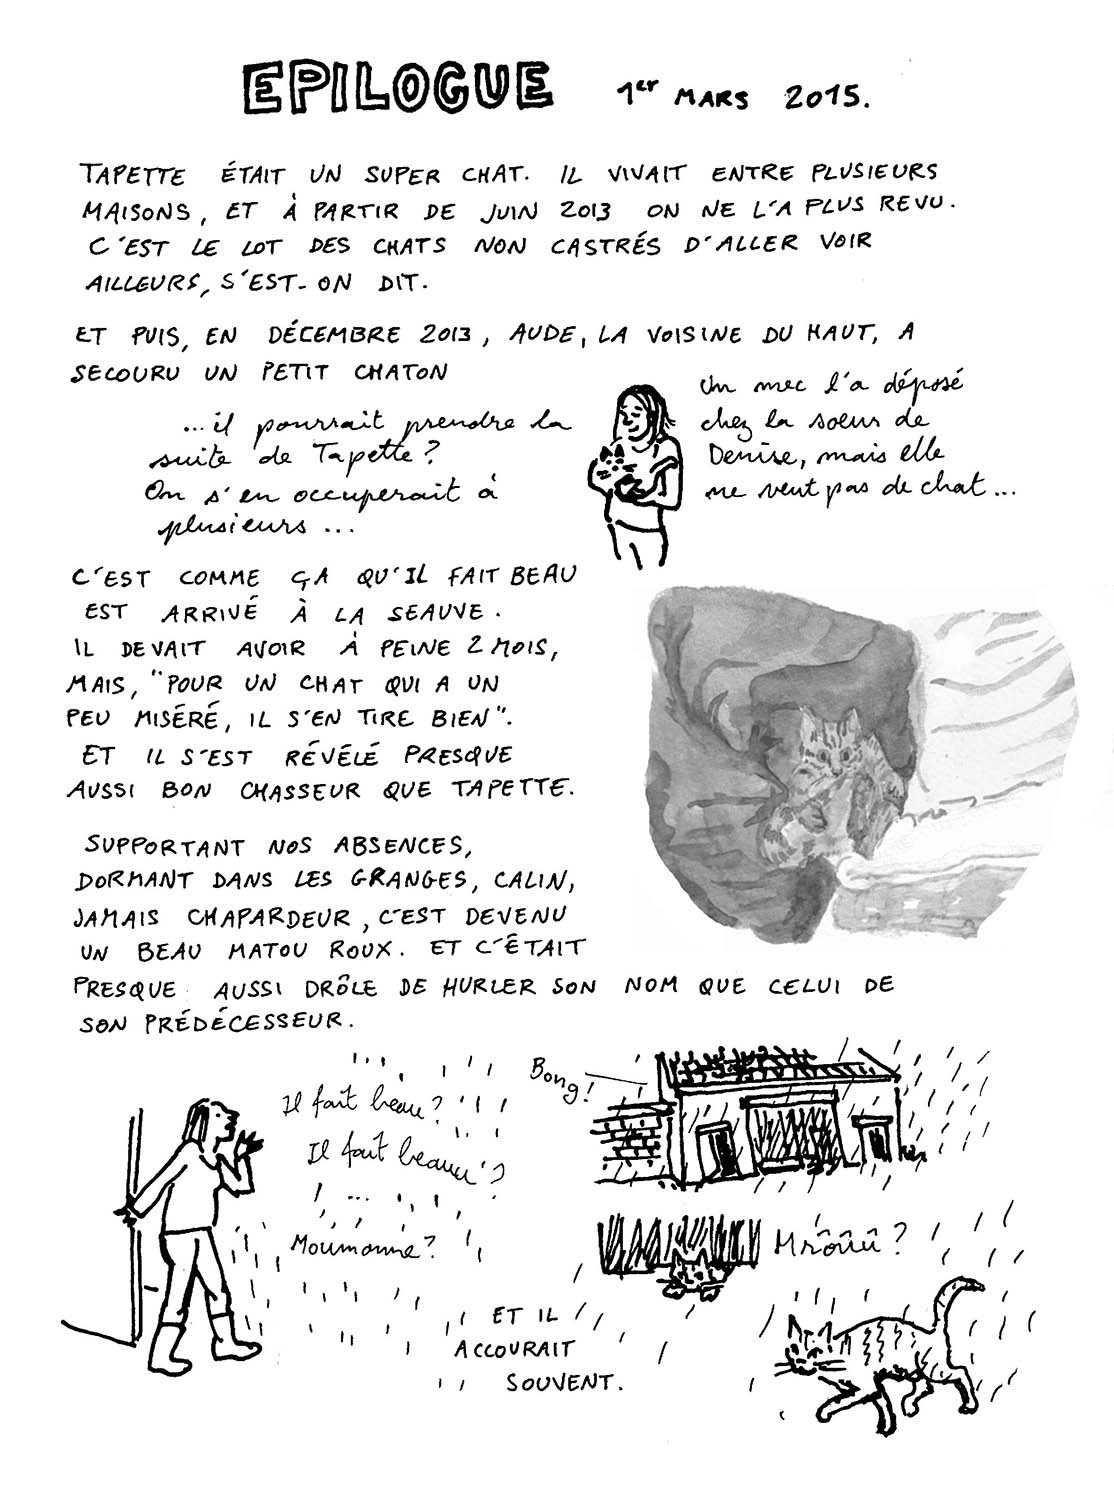 EPILOGUE 1er MARS 2015.
TAPETTE ÉTAIT UN SUPER CHAT. IL VIVAIT ENTRE PLUSIEURS
MAISONS, ET À PARTIR DE JUIN 2013 ON NE L'A PLUS REVU.
C'EST LE LOT DES CHATS NON CASTRÉS D'ALLER VOIR
AILLEURS, S'EST-ON DIT.
ET PUIS, EN DÉCEMBRE 2013, AUDE, LA VOISINE DU HAUT, A
SECOURU UN PETIT CHATON
Un mec l'a déposé
chez la soeur de
Denise, mais elle
ne veut pas de chat...
...il pourrait prendre la
suite de Tapette?
On s'en occuperait à
plusieurs...
C'EST COMME ÇA QU'IL FAIT BEAU
EST ARRIVÉ À LA SEAUVE.
IL DEVAIT AVOIR À PEINE 2 MOIS,
MAIS, "POUR UN CHAT QUI A UN
PEU MISÉRÉ, IL S'EN TIRE BIEN".
ET IL S'EST RÉVÉLÉ PRESQUE
AUSSI BON CHASSEUR QUE TAPETTE.
SUPPORTANT NOS ABSENCES,
DORMANT DANS LES GRANGES, CALIN,
JAMAIS CHAPARDEUR, C'EST DEVENU
UN BEAU MATOU ROUX. ET C'ÉTAIT
PRESQUE AUSSI DRÔLE DE HURLER SON NOM QUE CELUI DE
SON PRÉDÉCESSEUR.
Il fait beau?
Il fait beauuu?
...
Moumoune?
Bong!
Mrôûû?
ET IL
ACCOURAIT
SOUVENT.